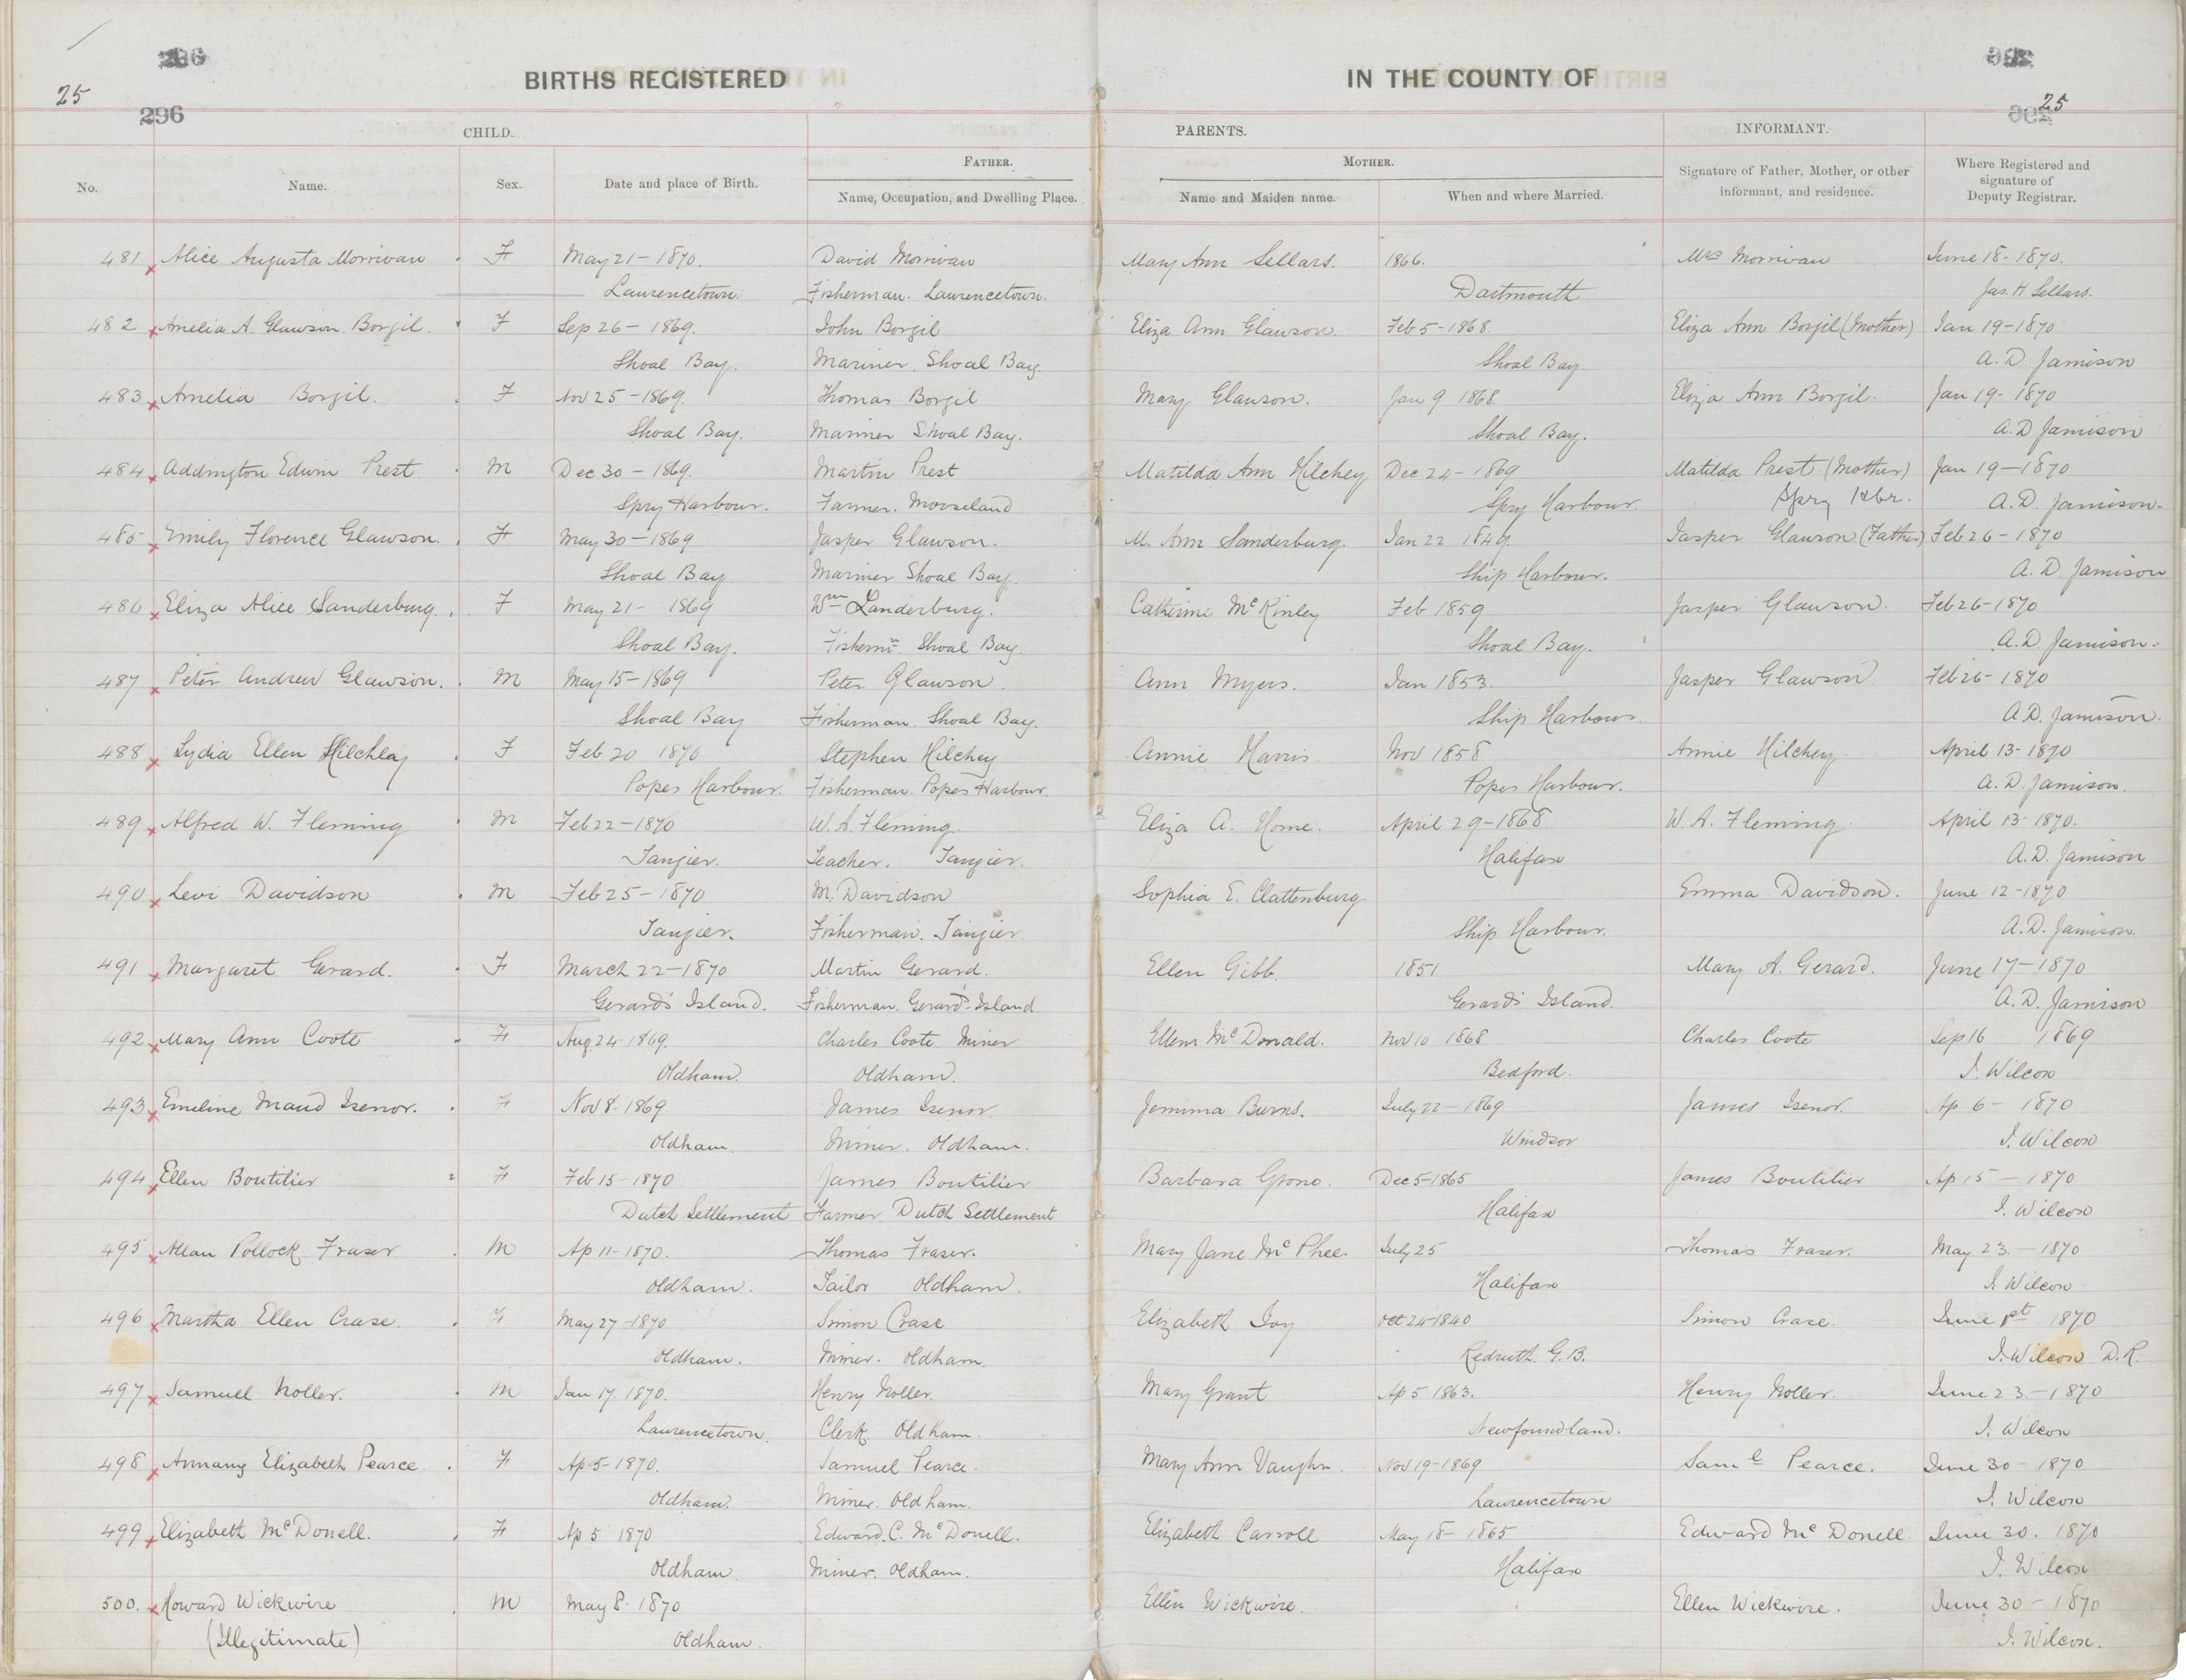 296
BIRTHS REGISTERED IN THE COUNTY OF
25 25
296
CHILD. PARENTS. INFORMANT.
No. Name. Sex. Date and place of Birth. FATHER. Name, Occupation, and Dwelling Place. MOTHER. Name and Maiden name. When and where Married. Signature of Father, Mother, or other informant, and residence. Where Registered and signature of Deputy Registrar.
481 Alice Augusta Morrivan F May 21 - 1870. David Morrivan Mary Ann Sellars. 1866. Mrs Morrivan June 18 - 1870.
Laurencetown. Fisherman. Laurencetown. Dartmouth Jas. H Sellars.
482 Amelia A. Glawson Borgil. F Sep 26 - 1869. John Borgil Eliza Ann Glawson Feb 5 - 1868. Eliza Ann Borgil (Mother) Jan 19 - 1870
Shoal Bay. Mariner. Shoal Bay. Shoal Bay. A. D Jamison
483 Amelia Borgil. F Nov 25 - 1869. Thomas Borgil Mary Glawson. Jan 9 1868. Eliza Ann Borgil. Jan 19 - 1870
Shoal Bay. Mariner Shoal Bay. Shoal Bay. A. D Jamison
484 Addington Edwin Prest. M Dec 30 - 1869. Martin Prest Matilda Ann Hilchey Dec 24 - 1869 Matilda Prest (Mother) Jan 19 - 1870
Spry Harbour. Farmer. Mooseland Spry Harbour. Spry Hbr. A. D. Jamison.
485 Emily Florence Glawson. F May 30 - 1869 Jasper Glawson. M. Ann Sanderburg. Jan 22 1849. Jasper Glawson (Father) Feb 26 - 1870
Shoal Bay Mariner Shoal Bay. Ship Harbour. A. D. Jamison
486 Eliza Alice Sanderburg. F May 21 - 1869 Wm Landerburg. Catherine McKinley Feb 1859 Jasper Glawson. Feb 26 - 1870
Shoal Bay. Fishermn. Shoal Bay. Shoal Bay. A. D. Jamison.
487 Peter Andrew Glawson. M May 15 - 1869 Peter Glawson. Ann Myers. Jan 1853. Jasper Glawson Feb 26 - 1870
Shoal Bay Fisherman. Shoal Bay. Ship Harbour. A. D. Jamison.
488 Lydia Ellen Hilchey F Feb 20 1870 Stephen Hilchey Annie Harris Nov 1858 Annie Hilchey. April 13 - 1870
Popes Harbour. Fisherman. Popes Harbour. Popes Harbour. A. D. Jamison.
489 Alfred W. Fleming M Feb 22 - 1870 W. A. Fleming. Eliza A. Horne. April 29 - 1868 W. A. Fleming. April 13 - 1870.
Tangier. Teacher. Tangier. Halifax A. D. Jamison
490 Levi Davidson M Feb 25 - 1870 M. Davidson Sophia E. Clattenburg Emma Davidson. June 12 - 1870
Tangier. Fisherman. Tangier Ship Harbour. A. D. Jamison.
491 Margaret Gerard. F March 22 - 1870 Martin Gerard. Ellen Gibb. 1851 Mary A. Gerard. June 17 - 1870
Gerard's Island. Fisherman. Gerard's Island. Gerard's Island. A. D. Jamison
492 Mary Ann Coote F Aug 24 - 1869. Charles Coote Miner Ellen McDonald. Nov 10 1868 Charles Coote Sep 16 1869
Oldham. Oldham. Bedford. I. Wilcox
493 Emeline Maud Isenor. F Nov 8 - 1869 James Isenor. Jemima Burns. July 22 - 1869 James Isenor. Ap 6 - 1870
Oldham. Miner. Oldham. Windsor I. Wilcox
494 Ellen Boutilier F Feb 15 - 1870 James Boutilier Barbara Grono. Dec 5 - 1865 James Boutilier Ap 15 - 1870
Dutch Settlement Farmer. Dutch Settlement Halifax I. Wilcox
495 Allan Pollock Fraser M Ap 11 - 1870. Thomas Fraser. Mary Jane McPhee. July 25 Thomas Fraser. May 23. - 1870
Oldham. Tailor Oldham. Halifax I. Wilcox
496 Martha Ellen Crase. F May 27 - 1870 Simon Crase Elizabeth Ivy Oct 24 - 1840 Simon Crase. June 1st 1870
Oldham. Miner. Oldham. Redruth. G.B. I. Wilcox D.R.
497 Samuel Noller. M Jan 17. 1870. Henry Noller. Mary Grant Ap 5 1863. Henry Noller. June 23 - 1870
Laurencetown. Clerk. Oldham. Newfoundland. I. Wilcox
498 Annamy Elizabeth Pearce. F Ap - 5 - 1870. Samuel Pearce. Mary Ann Vaughn. Nov 19 - 1869 Saml Pearce. June 30 - 1870
Oldham. Miner. Oldham. Laurencetown I. Wilcox
499 Elizabeth McDonell. F Ap 5 1870 Edward. C. McDonell. Elizabeth Carroll May 18 - 1865 Edward McDonell June 30. 1870
Oldham. Miner. Oldham. Halifax I. Wilcox
500. Howard Wickwire M May 8 - 1870 Ellen Wickwire. Ellen Wickwire. June 30 - 1870
(Illegitimate) Oldham. I. Wilcox.